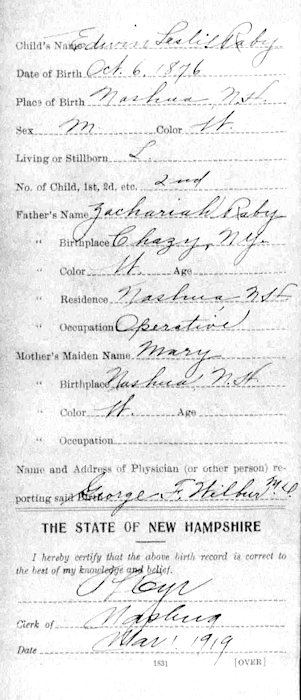 Child's Name Edwin Leslie Raby
Date of Birth Oct. 6, 1876
Place of Birth Nashua, N.H.
Sex M. Color W.
Living or Stillborn L.
No. of Child, 1st, 2d, etc. 2nd
Father's Name Zachariah Raby
" Birthplace Chazy, N.Y.
" Color W. Age
" Residence Nashua N.H.
" Occupation Operative
Mother's Maiden Name Mary
" Birthplace Nashua N.H.
" Color W. Age
" Occupation
Name and Address of Physician (or other person) re-
porting said Birth George F. Wilbur M.D.
THE STATE OF NEW HAMPSHIRE
I hereby certify that the above birth record is correct to
the best of my knowledge and belief.
Cyr
Clerk of Nashua
Date Mar. 1919
[OVER]